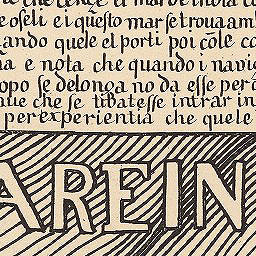 che
oseli e i questo mar se trova am
ando quele el porti poi cõle co
ña e nota che quando i navig
opo se delonga no da esse per
que che se tibatesse intrar in
perexperientia che quele
AREIN